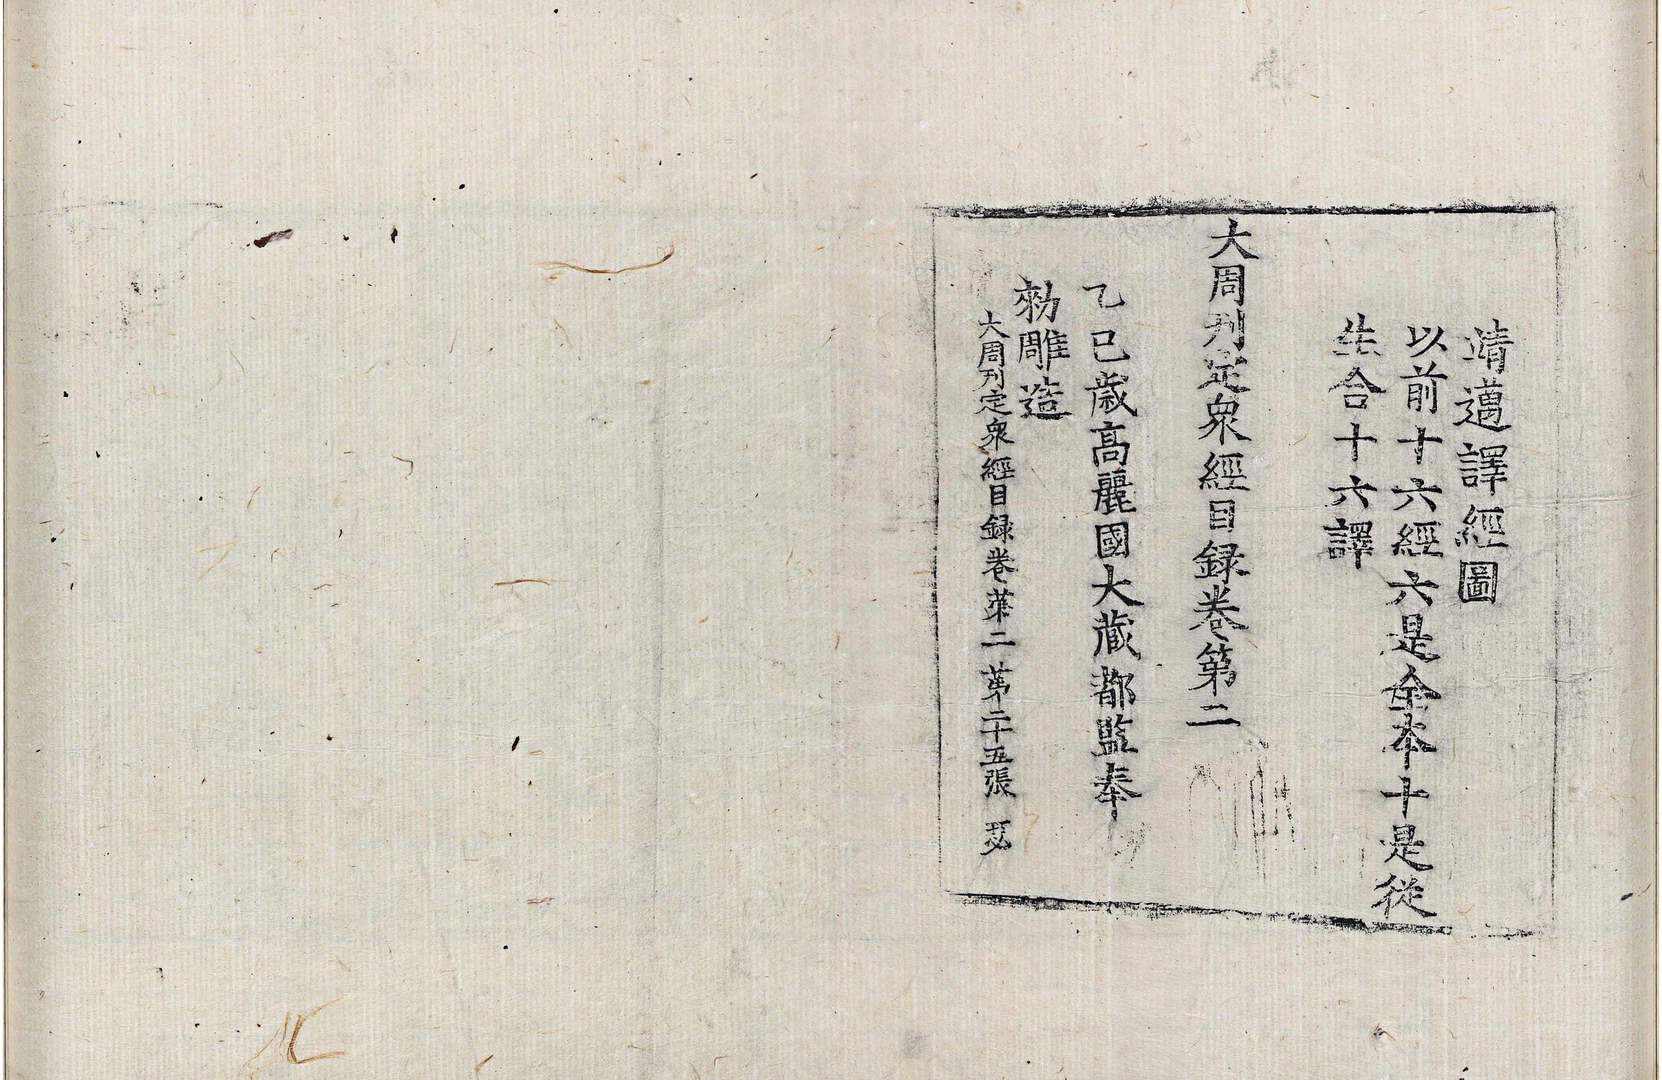 靖邁譯經圖
以前十六經六是全本十是從
失合十六譯
大周刊定衆經目録卷第二
乙巳歳高麗國大藏都監奉
勑雕造
大周刊定衆經目録卷第二 第二十五張 瑟